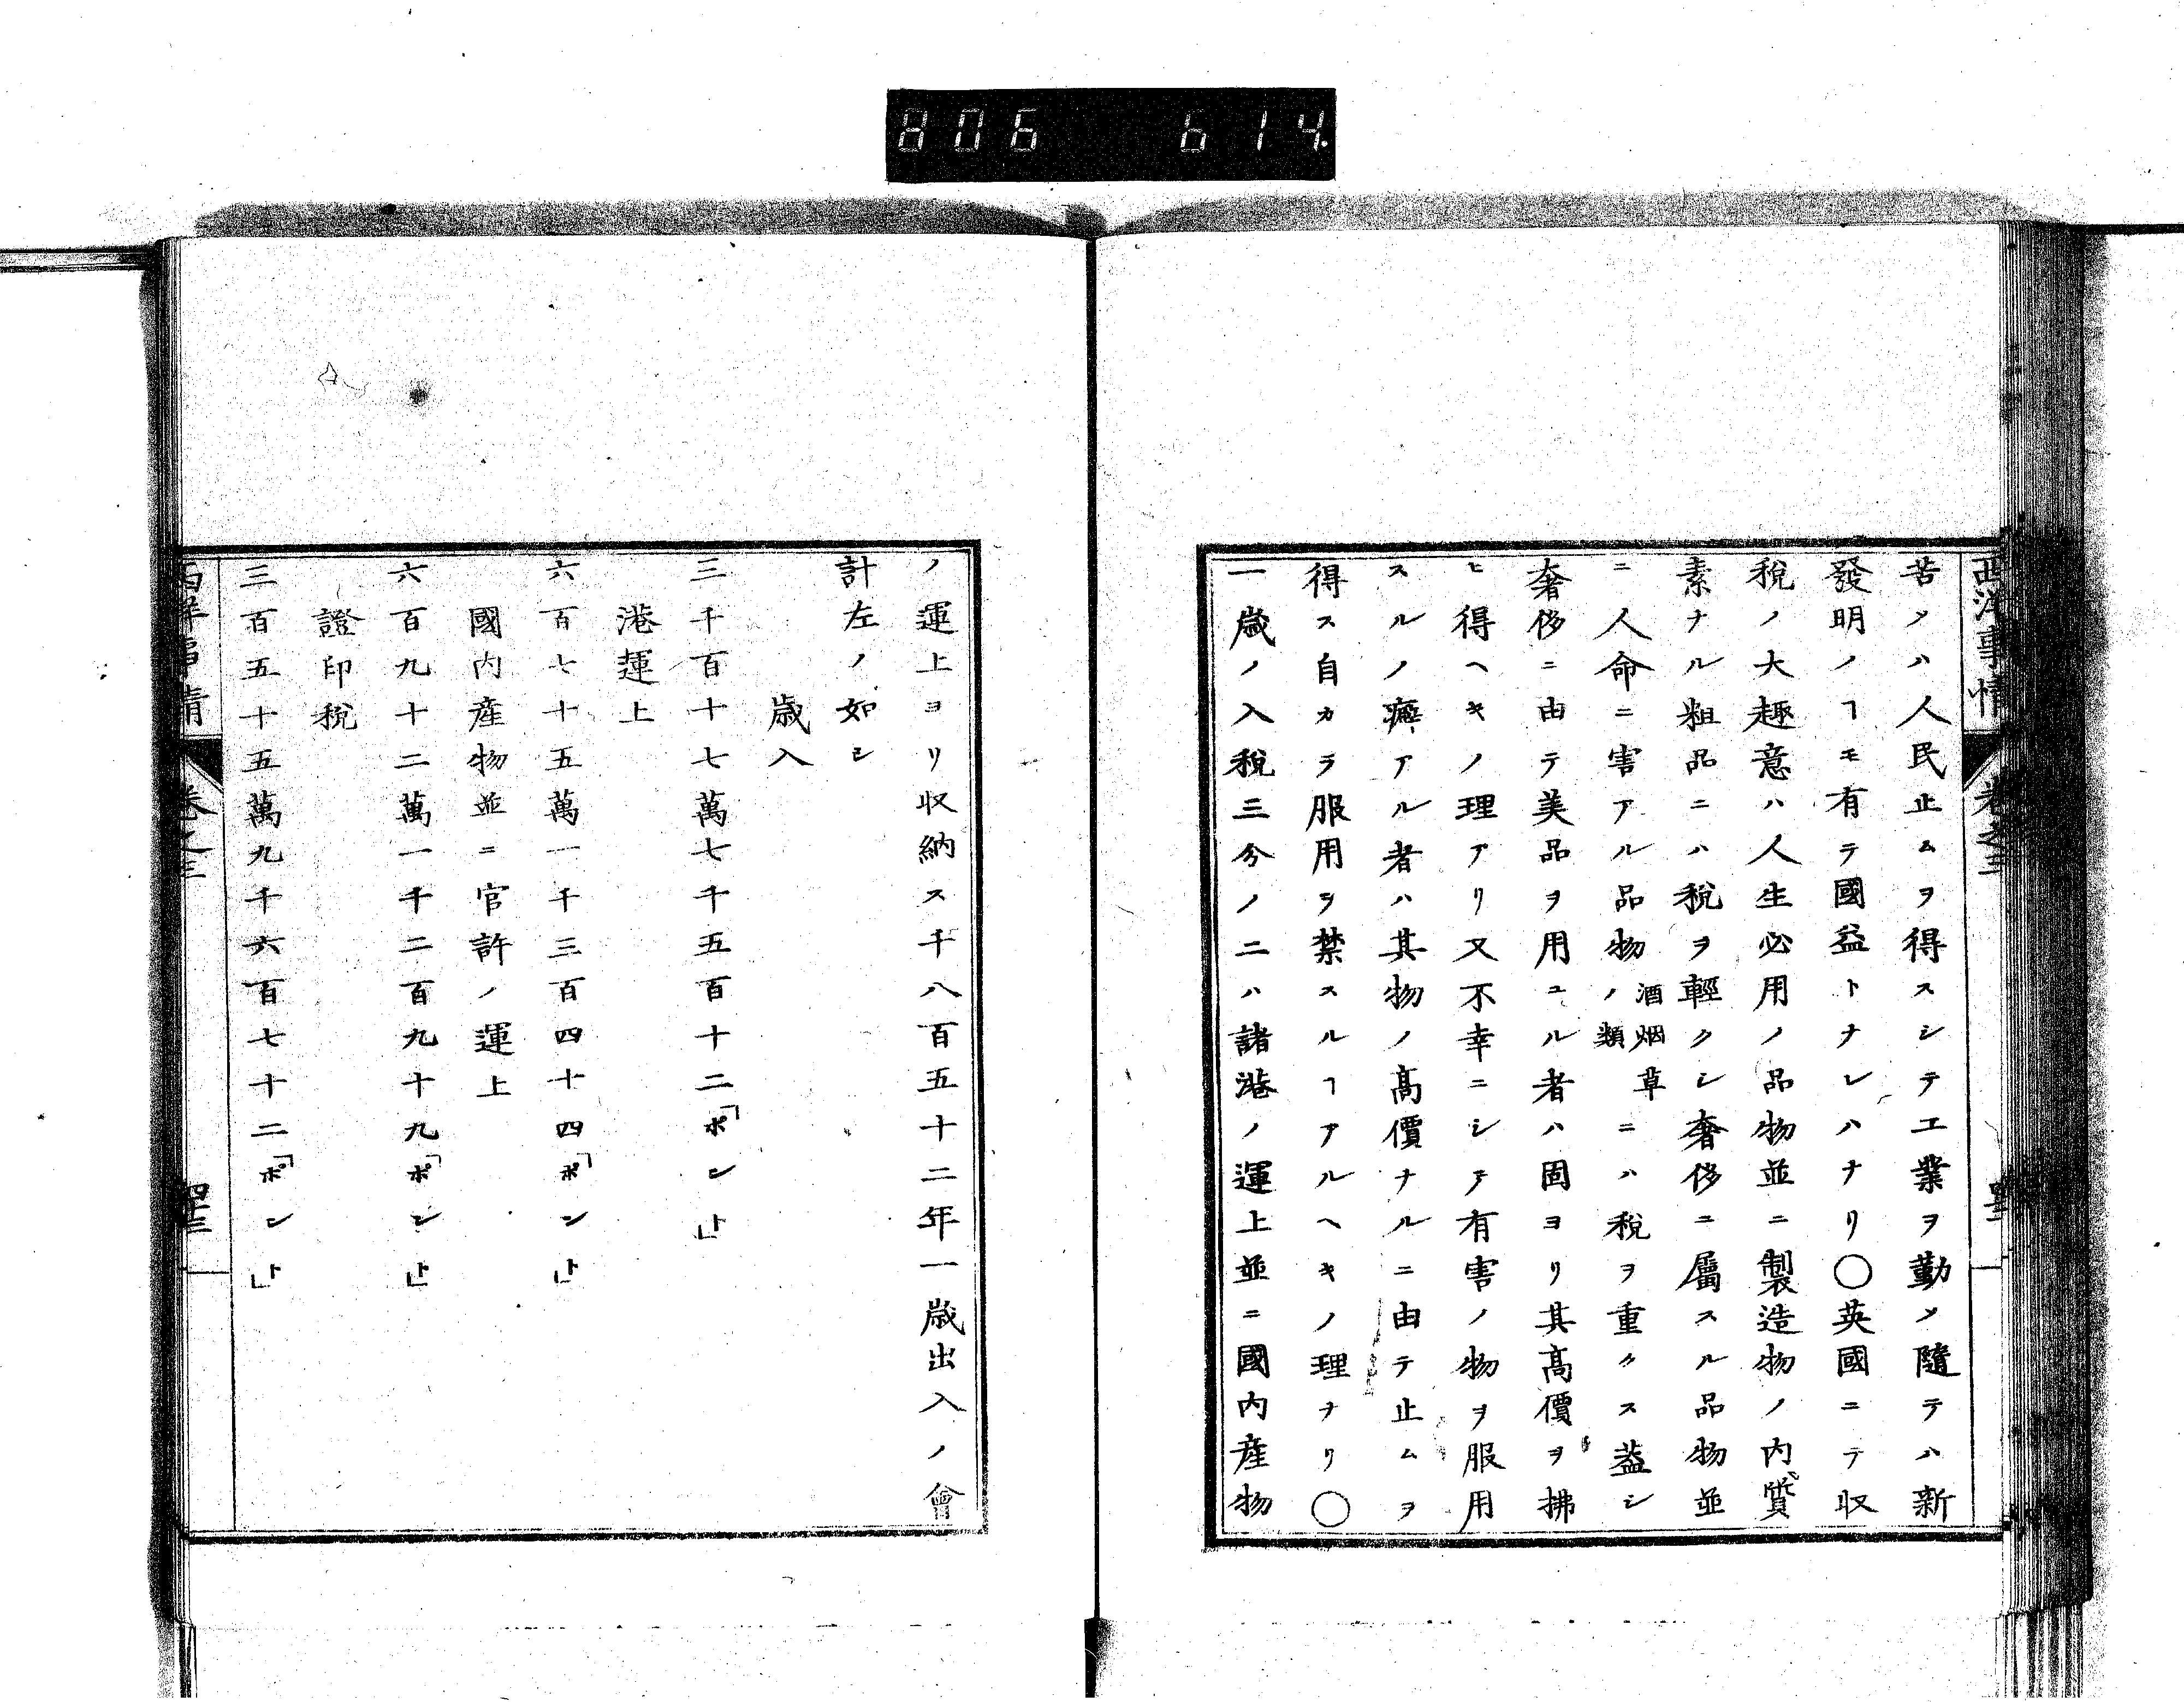 806 614.
西洋事情 卷之三
苦ノハ人民止ムヲ得スシテ工業ヲ勤メ隨テハ新
發明ノヿモ有テ國益トナレハナリ〇英國ニテ収
税ノ大趣意ハ人生必用ノ品物並ニ製造物ノ内質
素ナル粗品ニハ税ヲ輕クシ奢侈ニ屬スル品物並
ニ人命ニ害アル品物酒烟草ノ類ニハ税ヲ重クス蓋シ
奢侈ニ由テ美品ヲ用ユル者ハ固ヨリ其髙價ヲ拂
ヒ得ヘキノ理アリ又不幸ニシテ有害ノ物ヲ服用
スルノ癖アル者ハ其物ノ髙價ナルニ由テ止ムヲ
得ス自カラ服用ヲ禁スルヿアルヘキノ理ナリ〇
一歳ノ入税三分ノ二ハ諸港ノ運上並ニ國内産物
ノ運上ヨリ収納ス千八百五十二年一歳出入ノ會
計左ノ如シ
歳入
三千百十七萬七千五百十二「ポンド」
港運上
六百七十五萬一千三百四十四「ポンド」
國内産物並ニ官許ノ運上
六百九十二萬一千二百九十九「ポンド」
證印税
三百五十五萬九千六百七十二「ポンド」
西洋事情 卷之三 四十三